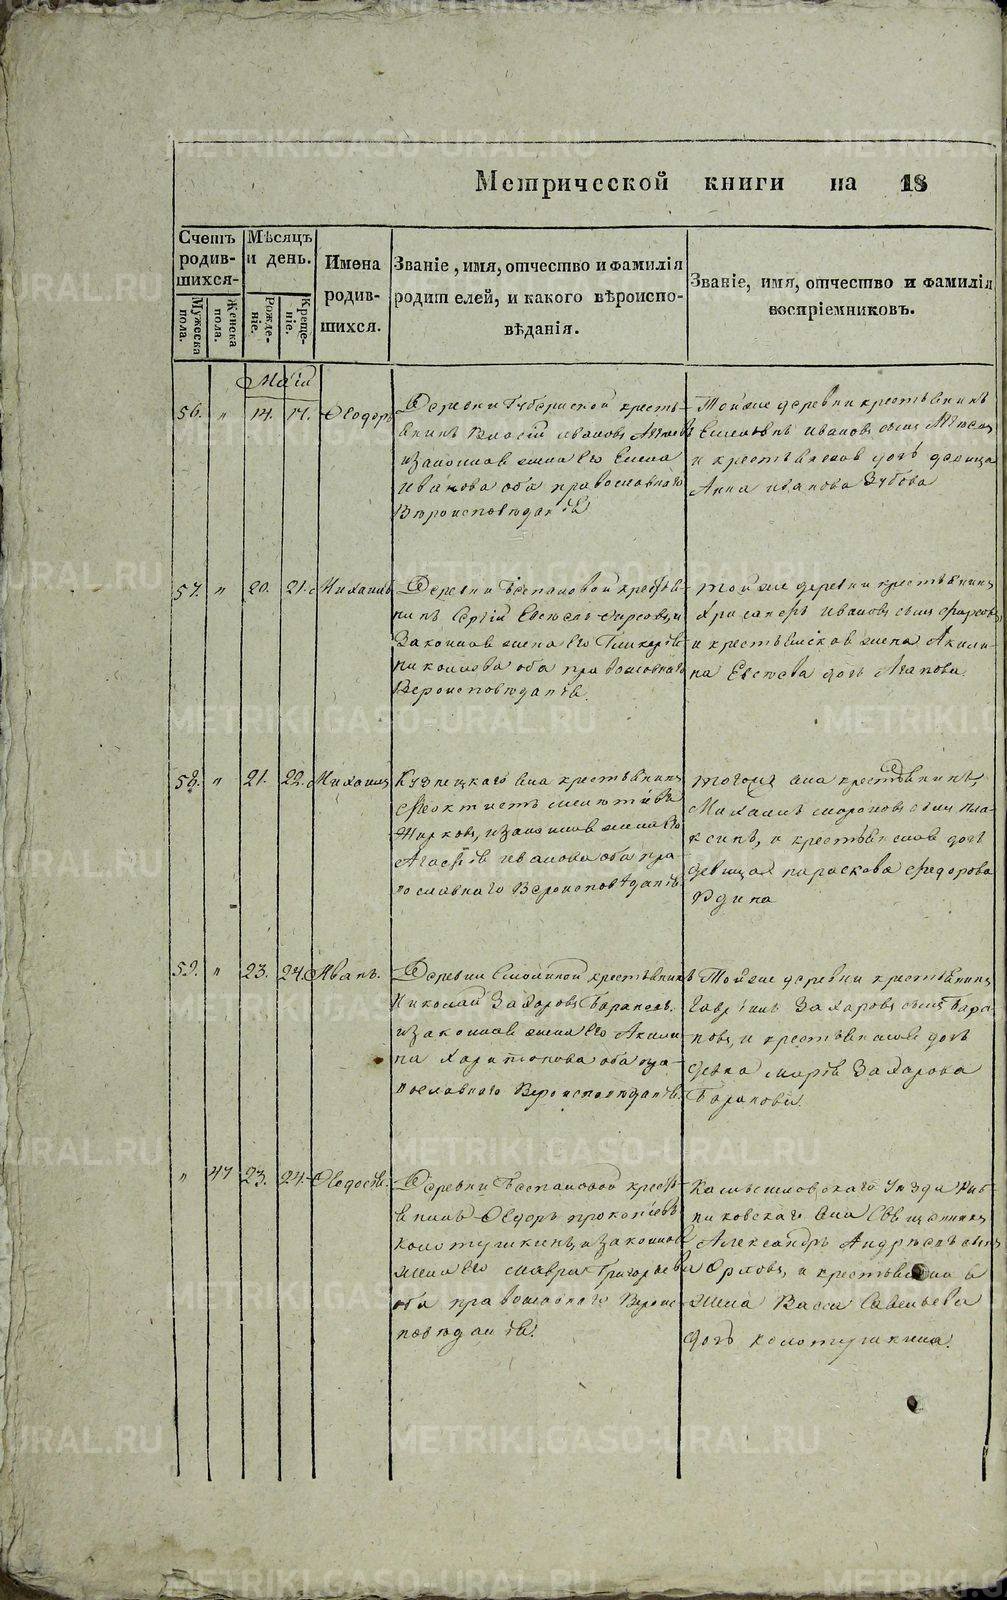 Метрической книги на 18
Счетъ родив-шихся-
Мѣсяцъ и день.
Имена родив-шихся.
Званіе, имя, отчество и фамилія
родителей, и какого вѣроиспо-
вѣданія.
Званіе, имя, отчество и фамилія
воспріемниковъ.
Мужеска пола.
Женска пола.
Рожде-ніе.
Креще-ніе.
Маія
56. " 14. 17. Ѳеодоръ
Деревни Губернской кресть-
янинъ Власій Ивановъ
и законная жена его Елена
Иванова оба православнаго
Вѣроисповѣданія
Той же деревни крестьянинъ
Ивановъ сынъ
и крестьянская дочь девица
Анна Иванова Зубова
57. " 20. 21. Михаилъ
Деревни крестья-
нинъ Сергій и
Законная жена его Гликерія
оба православнаго
Вероисповѣданія.
Той же деревни крестьянинъ
Ивановъ сынъ
и крестьянская жена Акили-
на дочь Агапова
58. " 21. 22. Михаилъ
Кузнецкаго села крестьянинъ
Феоктистъ
Жирковъ, и законная жена его
Иванова оба пра-
вославнаго Вероисповѣданія
тогоже села крестьянинъ
Михаилъ сынъ Пла-
ксинъ, и крестьянская дочь
девица Параскова Федорова
59. " 23. 24. Иванъ.
Деревни Смолиной крестьянинъ
Николай Захаровъ Барановъ.
и законная жена его Акили-
на Харитонова оба пра-
вославнаго Вероисповѣданія.
Той же деревни крестьянинъ
Гаврiилъ Захаровъ сынъ Бара-
новъ, и крестьянская дочь
девка Марія Захарова
Баранова.
" 47 23. 24. Ѳеодосія.
Деревни кресть-
янинъ Ѳедоръ Прокопіевъ
Колотушкинъ, и законная
жена его Мавра Григорьева
оба православнаго Вероис-
повѣданія.
Камышловскаго Уѣзда
села
Александръ Андреевъ сынъ
Орловъ, и крестьянская
жена Васса Савельева
дочь Колотушкина.
METRIKI.GASO-URAL.RU